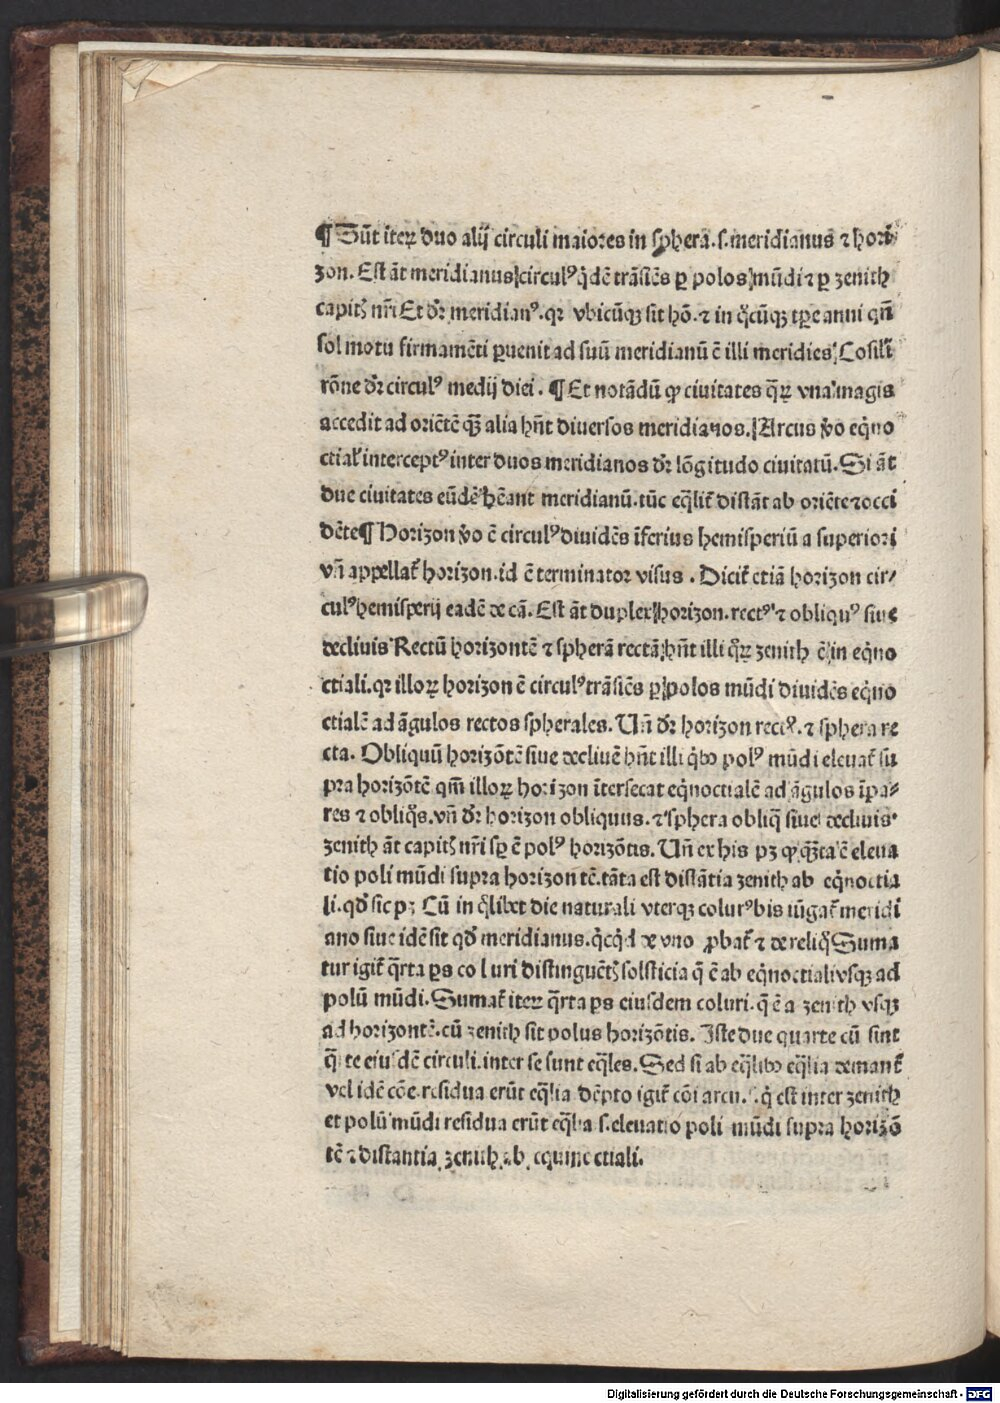 ¶ Sūt iteꝝ duo alij circuli maiores in sphera.s.meridianus ⁊ hori
zon. Est āt meridianus circulꝰ q̇dē trāsiēs ꝑ polos mūdi ⁊ ꝑ zenith
capitꝭ nr̄i Et dr̄ meridianꝰ.qꝛ vbicūqꝫ sit hō.⁊ in q̊cūqꝫ tꝑe anni qn̄
sol motu firmamēti ꝑuenit ad suū meridianū ē illi meridies Cōsili
rōne dr̄ circulꝰ medij diei. ¶ Et notādū ꝙ ciuitates q̄ꝝ vna magis
accedit ad oriētē qꝫ̄ alia hn̄t diuersos meridianos. Arcus v̊o eq̇no
ctial' interceptꝰ inter duos meridianos dr̄ lōgitudo ciuitatū. Si āt
due ciuitates eūdē hēant meridianū.tūc eq̄lit̄ distāt ab oriēte ⁊ occi
dēte ¶ Horizon v̊o ē circulꝰ diuidēs īferius hemisperiū a superiori
vn̄ appellat̄ horizon.id ē terminator visus. Dicit̄ etiā horizon cir/
culꝰ hemisperij eadē de cā. Est āt duplex horizon.rectꝰ ⁊ obliquꝰ siue
decliuis Rectū horizontē ⁊ spherā rectā hn̄t illi q̊ꝝ zenith ē in eq̇no
ctiali.qꝛ illoꝝ horizon ē circulꝰ trāsiēs ꝑ polos mūdi diuidēs eq̇no
ctialē ad āgulos rectos spherales. Un̄ dr̄ horizon rectꝰ.⁊ sphera re
cta. Obliquū horizōtē siue decliuē hn̄t illi q̇bꝰ polꝰ mūdi eleuat̄ su
pra horizōtē qm̄ illoꝝ horizon īntersecat eq̇noctialē ad āgulos īpa/
res ⁊ obliq̊s.vn̄ dr̄ horizon obliquus.⁊ sphera obliq̄ siue decliuis.
zenith āt capitꝭ nr̄i sꝑ ē polꝰ horizōtis. Un̄ ex his pꝫ ꝙ qꝫ̄ta ē eleua
tio poli mūdi supra horizon tē.tāta est distātia zenith ab eq̇noctia
li.qd̄ sic pꝫ Cū in q̊libet die naturali vterqꝫ colurꝰ bis iūgat̄ meridi
ano siue idē sit qd̄ meridianus.q̇cq̇d de vno ꝓbat̄ ⁊ de reliq̊ Suma
tur igit̄ q̄rta ꝑs co l uri distinguētꝭ solsticia q̄ ē ab eq̇noctiali vsqꝫ ad
polū mūdi. Sumat̄ iteꝝ q̄rta ꝑs eiusdem coluri.q̄ ē a zenith vsqꝫ
ad horizontē.cū zenith sit polus horizōtis. Iste due quarte cū sint
q̄rte eiusdē circuli.inter se sunt eq̄les. Sed si ab eq̄libꝰ eq̄lia demant̄
vel idē cōe.residua erūt eq̄lia dēpto igit̄ cōi arcu.s.q̇ est inter zenith
et polū mūdi residua erūt eq̄lia s.eleuatio poli mūdi supra horizō
tē ⁊ distantia zenith ab equinoctiali.
Digitalisierung gefördert durch die Deutsche Forschungsgemeinschaft - DFG